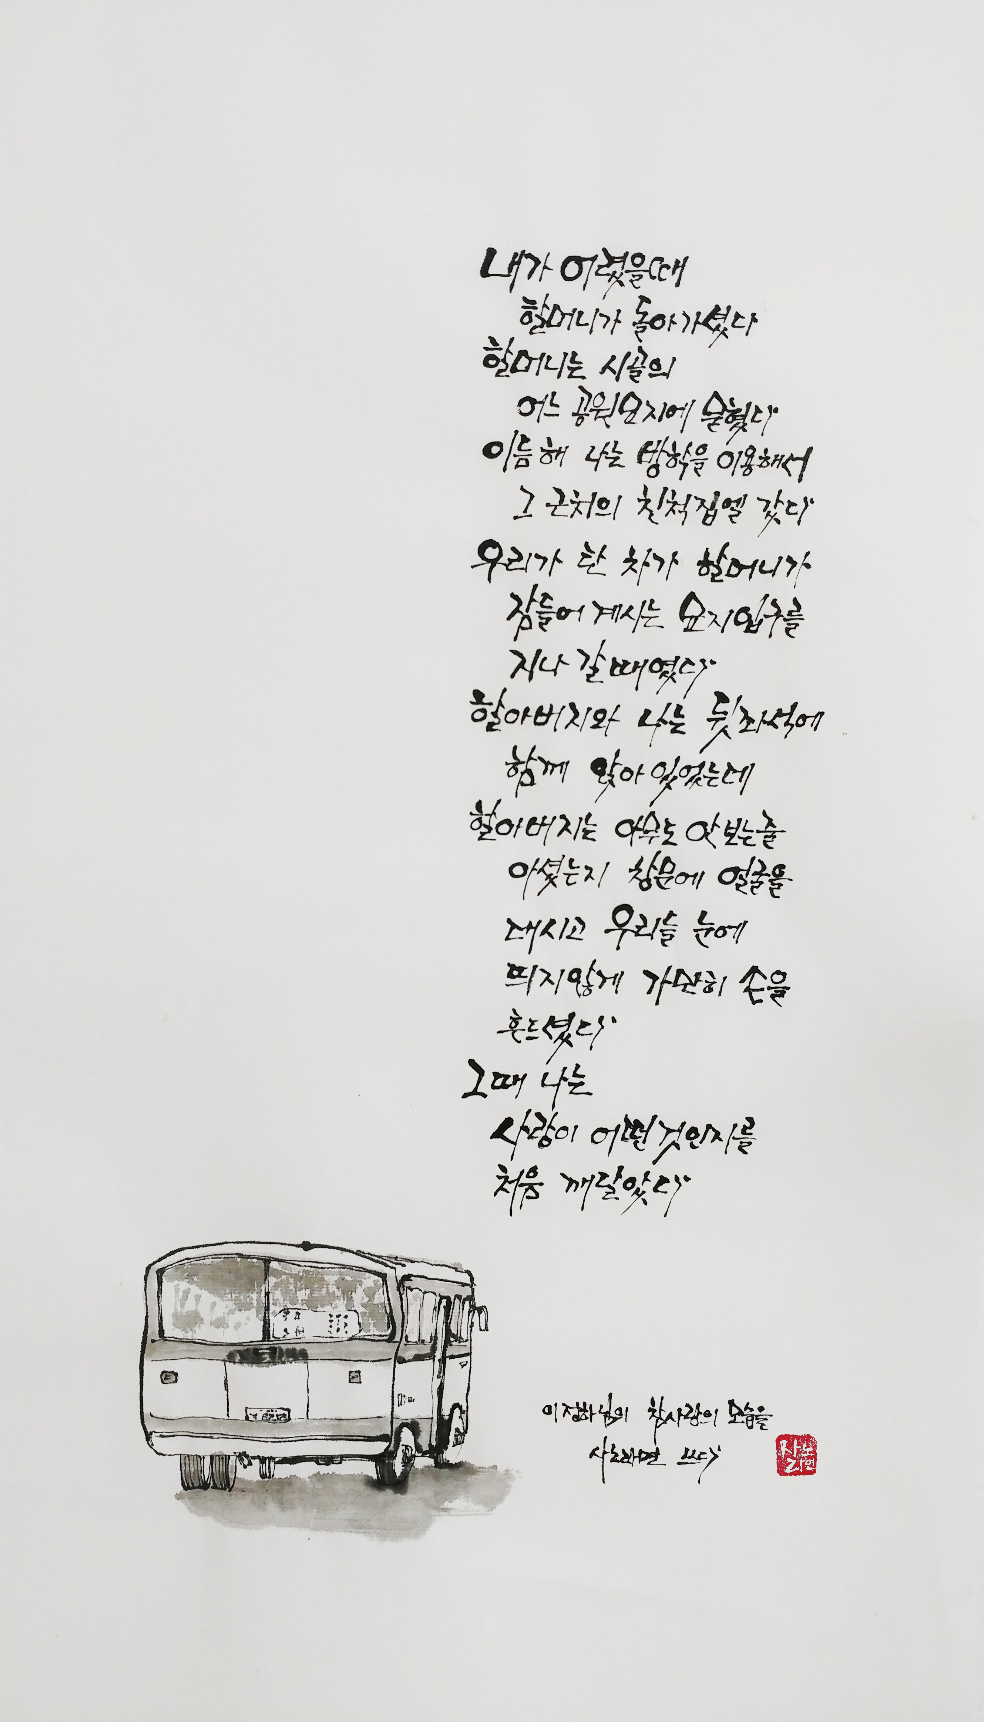 내가 어렸을때
할머니가 돌아가셨다
할머니는 시골의
어느 공원묘지에 묻혔다
이듬해 나는 방학을 이용해서
그 근처의 친척집엘 갔다
우리가 탄 차가 할머니가
잠들어 계시는 묘지입구를
지나 갈 때였다
할아버지와 나는 뒷좌석에
함께 앉아 있었는데
할아버지는 아무도 안 보는줄
아셨는지 창문에 얼굴을
대시고 우리들 눈에
띄지않게 가만히 손을
흔드셨다
그때 나는
사랑이 어떤것인지를
처음 깨달았다
이정하님의 참사랑의 모습을
사노라면 쓰다
사노라면